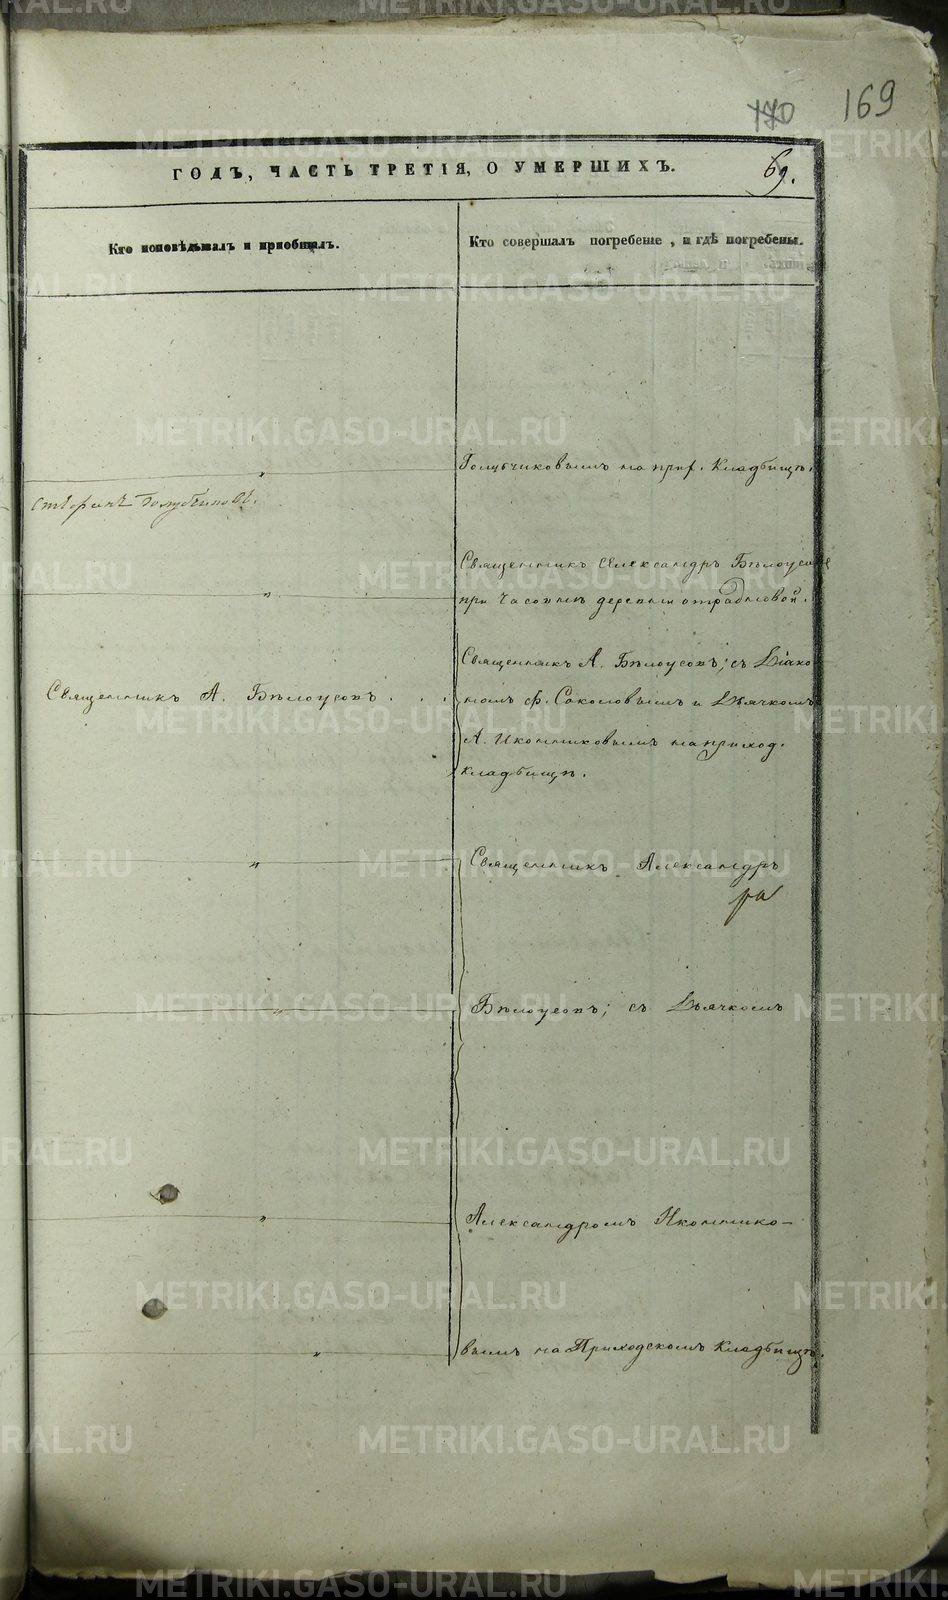 170 169
ГОДЪ, ЧАСТЬ ТРЕТІЯ, О УМЕРШИХЪ.
69.
Кто исповѣдывалъ и пріобщалъ.
Кто совершалъ погребеніе, и гдѣ погребены.
на прих. Кладбищѣ.
Священникъ Александръ Бѣлоусовъ
при Часовнѣ деревни
Священникъ А. Бѣлоусовъ; съ Діако
Священникъ А. Бѣлоусовъ . . .
номъ Ф. Соколовымъ и Дьячкомъ
А. Иконниковымъ на приход.
кладбищѣ.
Священникъ Александръ
Бѣлоусовъ; съ Дьячкомъ
Александромъ Иконнико-
вымъ на Приходскомъ Кладбищѣ.
METRIKI.GASO-URAL.RU